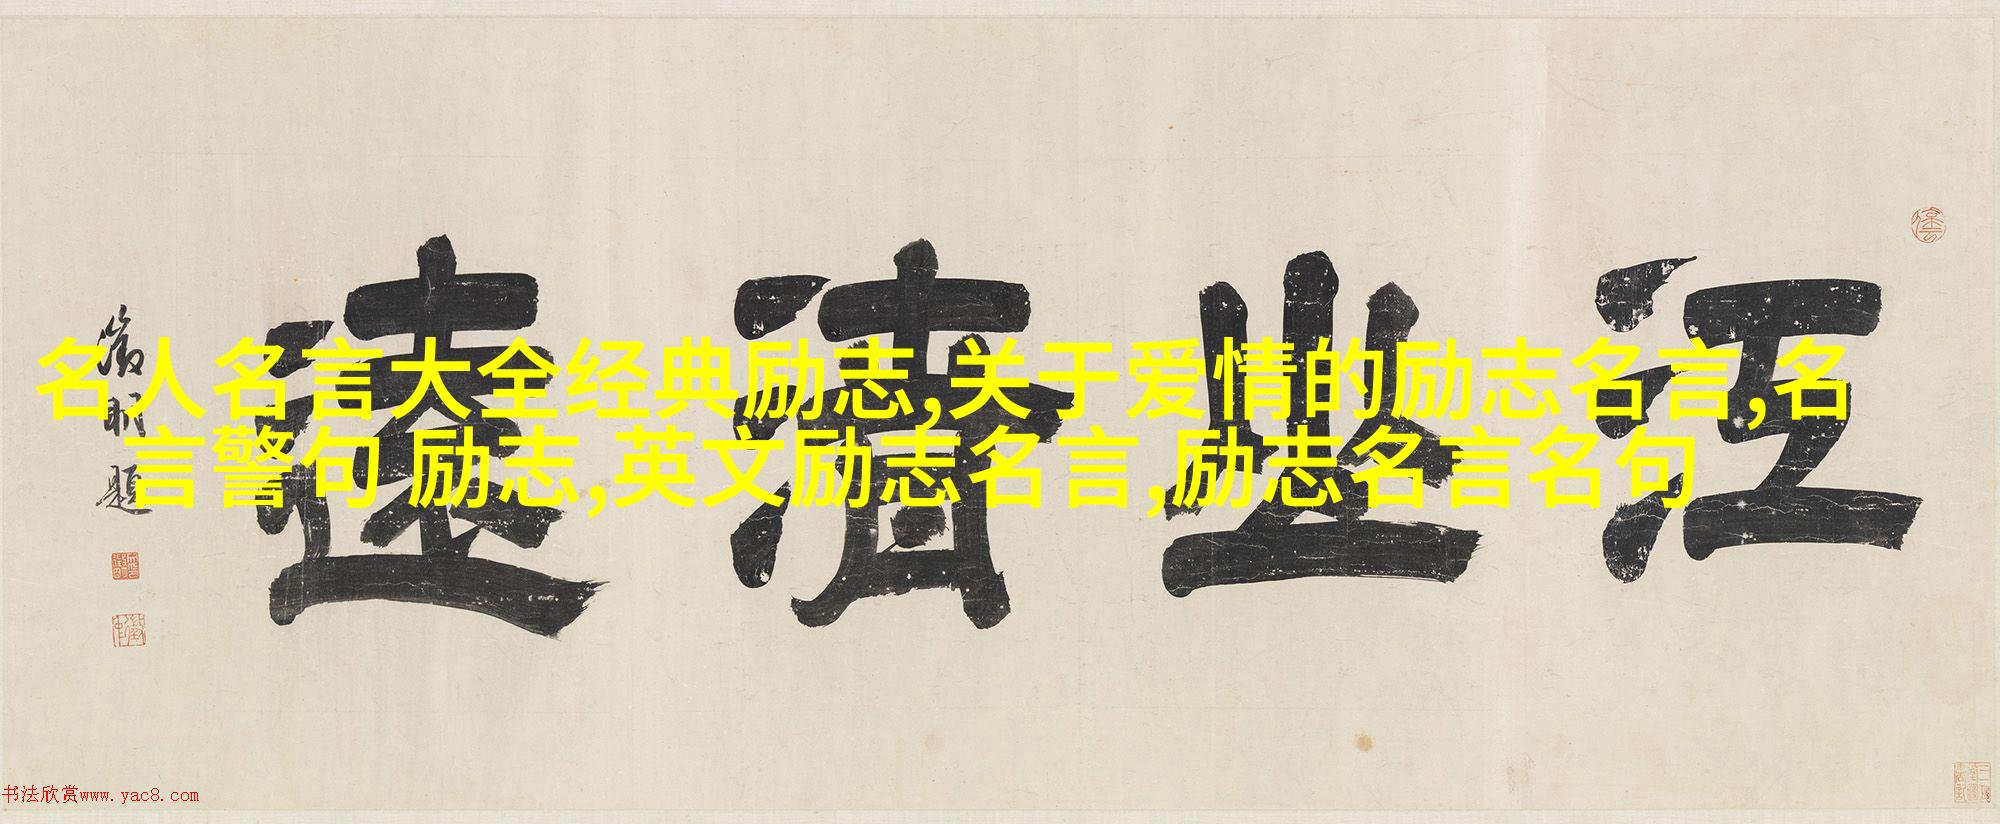 江山清遠
徵明題
名人名言大全经典励志,关于爱情的励志名言,名
言警句 励志,英文励志名言,励志名言名句
书法欣赏www.yac8.com